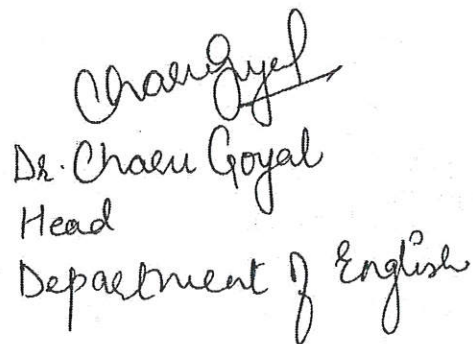 Charu Goyal
Dr. Charu Goyal
Head
Department of English